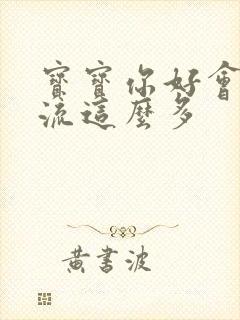 寶寶你好會
流這麼多
黃書波